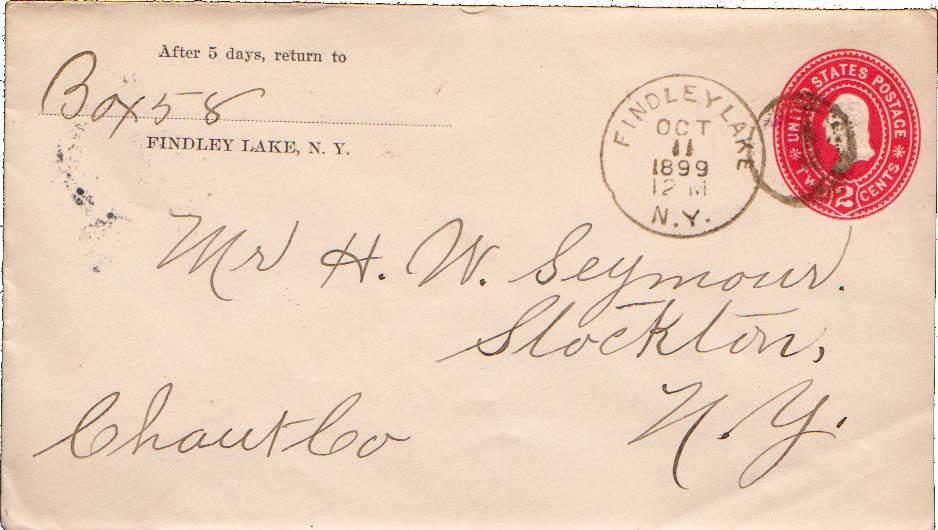 After 5 days, return to
Box 58
FINDLEY LAKE, N. Y.
FINDLEY LAKE
OCT
11
1899
12 M
N.Y.
UNITED STATES POSTAGE
TWO 2 CENTS
Mr H. W. Seymour.
Stockton,
N. Y.
Chaut Co